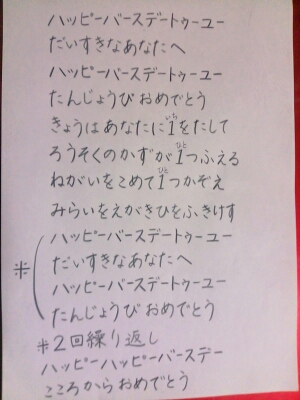 ハッピーバースデートゥーユー
だいすきなあなたへ
ハッピーバースデートゥーユー
たんじょうび おめでとう
きょうはあなたに1をたして
ろうそくのかずが1つふえる
ねがいをこめて1つかぞえ
みらいをえがきひをふきけす
ハッピーバースデートゥーユー
だいすきなあなたへ
ハッピーバースデートゥーユー
たんじょうび おめでとう
※2回繰り返し
ハッピーハッピーバースデー
こころからおめでとう